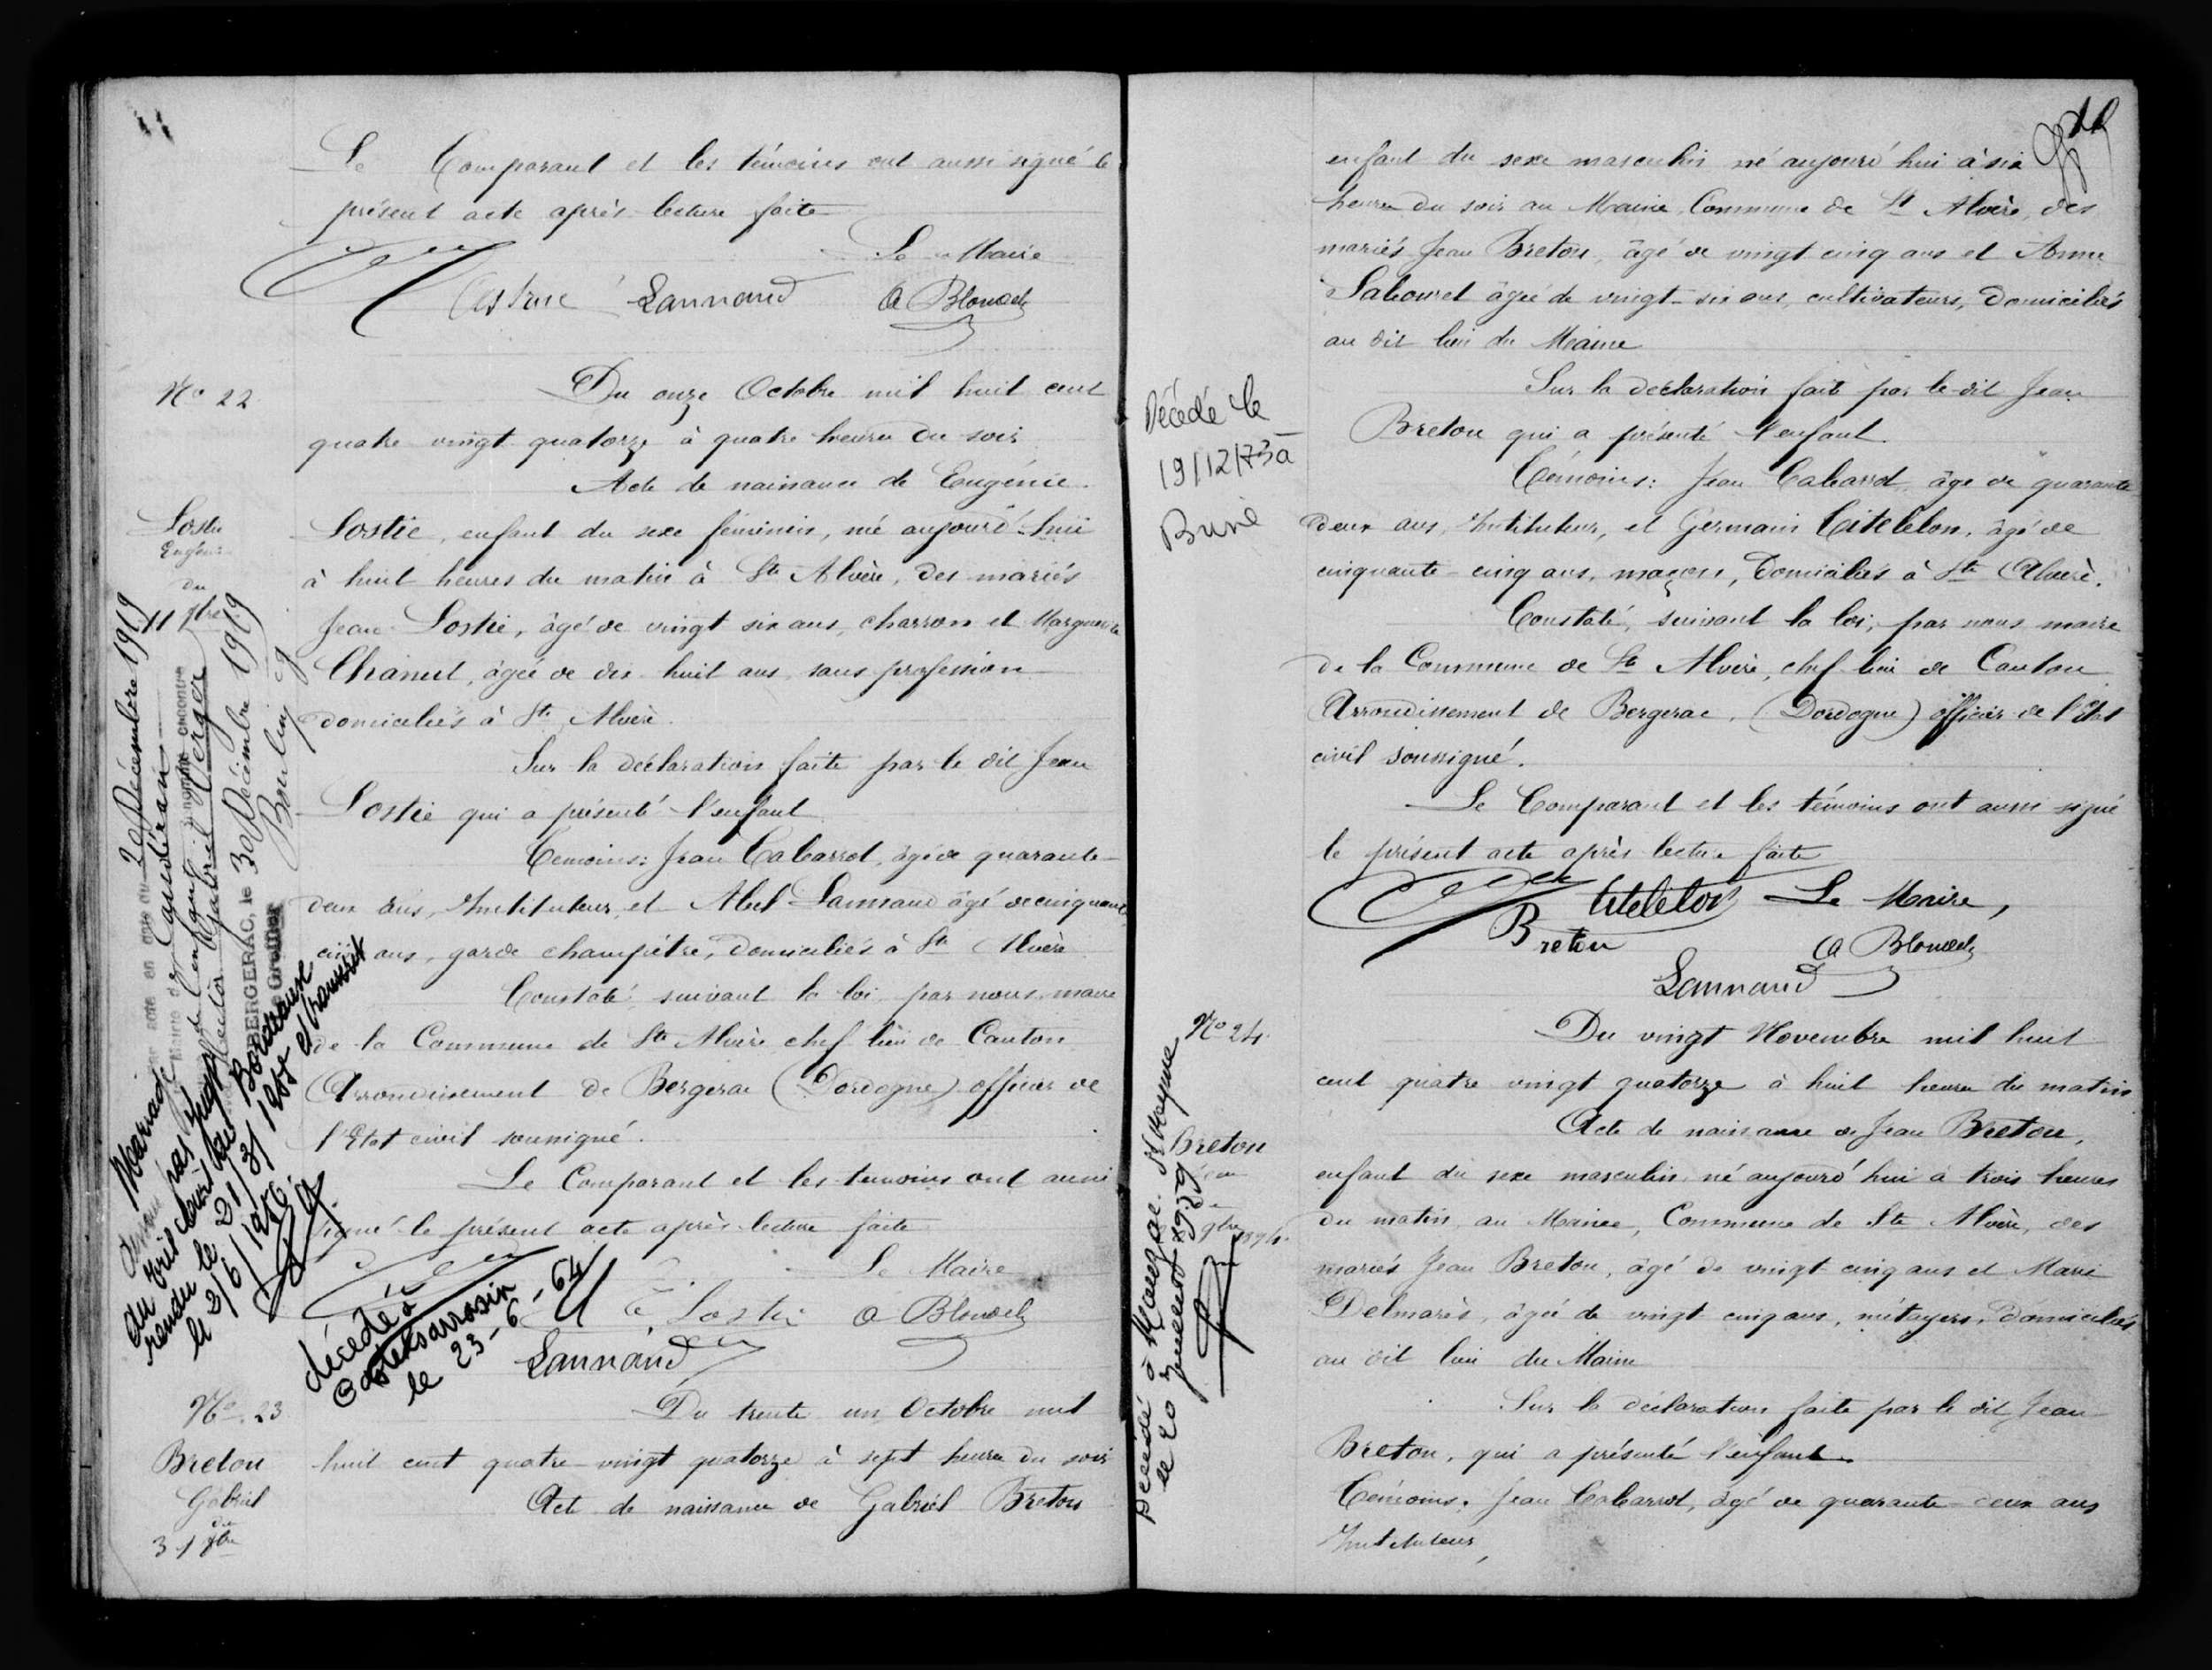 Le Comparant et les témoins ont aussi signé le
présent acte après lecture faite
Le Maire
Lannaud A Blondel
No 22
Du onze Octobre mil huit cent
quatre vingt quatorze à quatre heures du soir
Acte de naissance de Eugénie
Lostie
Eugénie
du
11 9bre
Lostie, enfant du sexe féminin, né aujourd'hui
à huit heures du matin à Ste Alvère, des mariés
Jean Lostie, âgé de vingt six ans, charron et Marguerite
Chanut, âgée de dix huit ans, sans profession
domiciliés à Ste Alvère.
Sur la déclaration faite par le dit Jean
Lostie qui a présenté l'enfant
Témoins: Jean Cabarrot, âgé de quarante
deux ans, Instituteur, et Abel Lannaud âgé de cinquante
ans, garde champêtre, domiciliés à Ste Alvère
Constaté suivant la loi, par nous maire
de la Commune de Ste Alvère chef lieu de Canton
Arrondissement de Bergerac (Dordogne) officier de
l'Etat civil soussigné.
Le Comparant et les témoins ont aussi
signé le présent acte après lecture faite
Le Maire
Lostie A Blondel
Lannaud
20 Décembre 1919
Caudéran
Gabriel Verger
BERGERAC, le 30 Décembre 1919
Le Greffier
Mariage
par
du Bordeaux
rendu le 21/3/ et transcrit
le 2/6/
décédé à
Castelsarrasin
le 23-6-64
No 23
Breton
Gabriel
du
31 8bre
Du trente un Octobre mil
huit cent quatre-vingt quatorze à sept heures du soir
Acte de naissance de Gabriel Breton
enfant du sexe masculin né aujourd'hui à six
heures du soir au Maine, Commune de Ste Alvère, des
mariés Jean Breton, âgé de vingt cinq ans et Anne
Labouret âgée de vingt-six ans, cultivateurs, domiciliés
au dit lieu du Maine
Décédé le
19/12/73 à
Brive
Sur la déclaration faite par le dit Jean
Breton qui a présenté l'enfant.
Témoins: Jean Cabarrot âgé de quarante
deux ans, Instituteur, et Germain Citelelon, âgé de
cinquante-cinq ans, maçon, domiciliés à Ste Alvère.
Constaté, suivant la loi, par nous maire
de la Commune de Ste Alvère, chef lieu de Canton
Arrondissement de Bergerac, (Dordogne) officier de l'Etat
civil soussigné.
Le Comparant et les témoins ont aussi signé
le présent acte après lecture faite
Citelelon Le Maire,
Breton A Blondel
Lannaud
No 24
Du vingt Novembre mil huit
cent quatre vingt quatorze à huit heures du matin
Acte de naissance de Jean Breton,
Breton
Jean
9bre 1894.
Décédé à Mauzac
le 20 Juillet 1959
enfant du sexe masculin, né aujourd'hui à trois heures
du matin, au Maine, Commune de Ste Alvère, des
mariés Jean Breton, âgé de vingt cinq ans et Marie
Delmarès, âgée de vingt cinq ans, métayers, domiciliés
au dit lieu du Maine
Sur la déclaration faite par le dit Jean
Breton, qui a présenté l'enfant.
Témoins, Jean Cabarrot, âgé de quarante-deux ans
Instituteur,